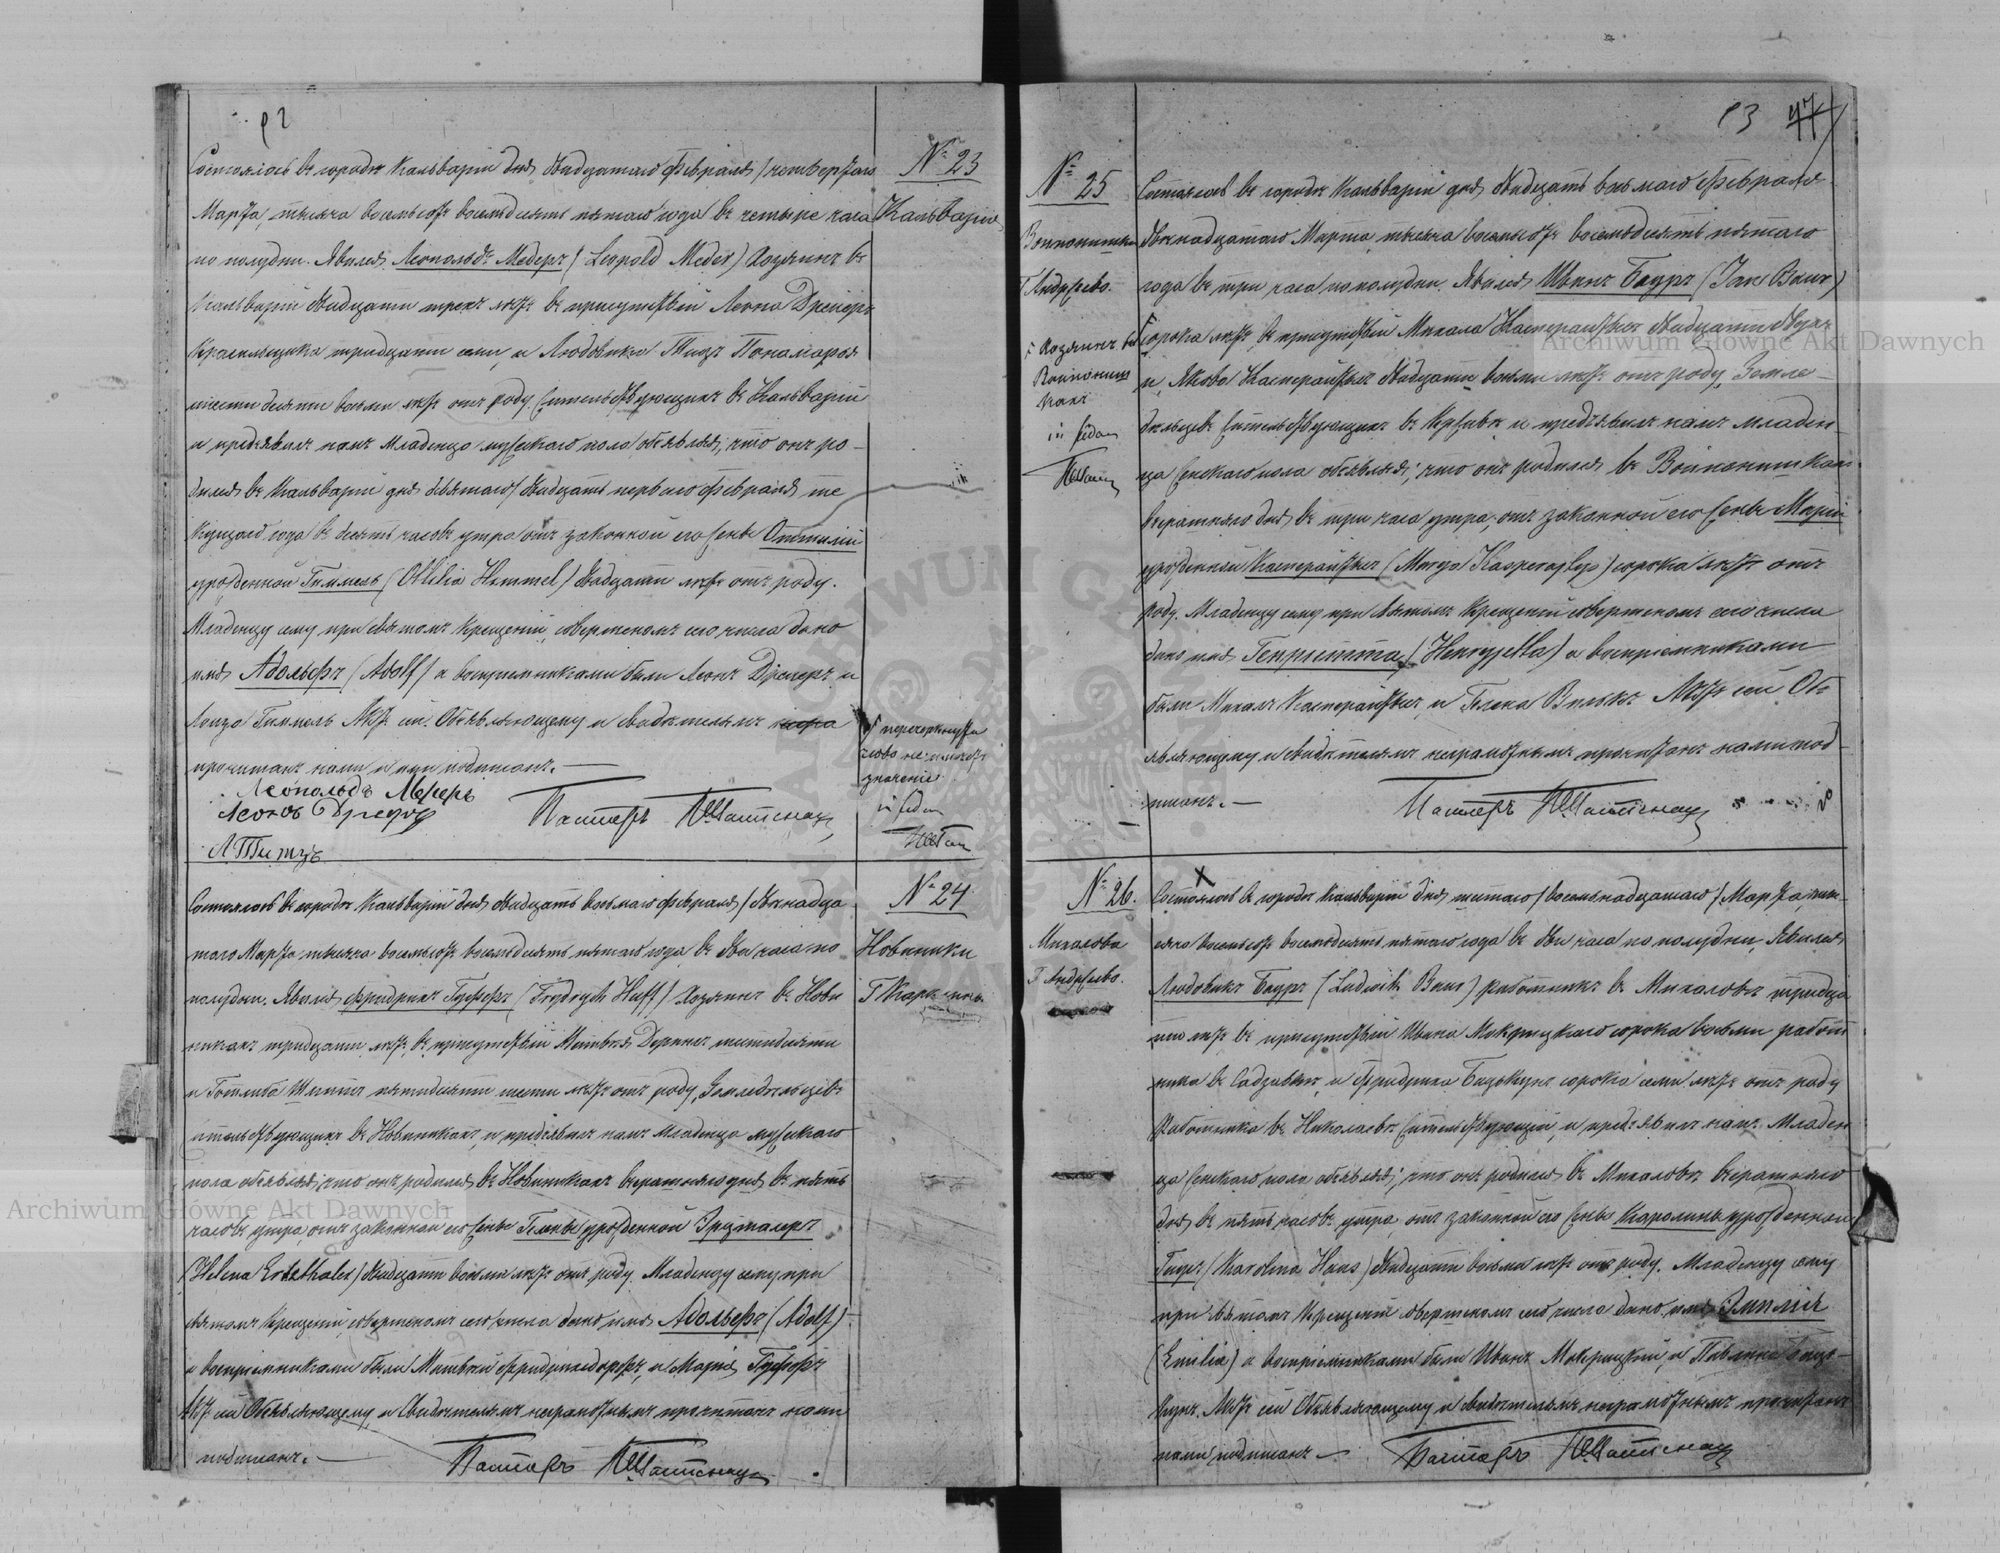 92
№ 23
Кальварія
Состоялось въ городѣ Кальваріи дня двадцатаго Февраля / четвертаго
Марта, тысяча восемьсотъ восемьдесятъ пятаго года въ четыре часа
по полудни. Явился Леопольдъ Медеръ (Leopold Meder) Хозяинъ въ
Кальваріи двадцати трехъ лѣтъ въ присутствіи Леона Дрегеръ
Красильщика тридцати семи, и Людовика Титцъ Пономаря
шести десяти восьми лѣтъ отъ роду, жительствующихъ въ Кальваріи
и предъявилъ намъ Младенца мужескаго пола объявляя, что онъ ро-
дился въ Кальваріи дня девятаго / двадцать перваго Февраля те
кущаго года въ десять часовъ утра отъ законной его жены Оттиліи
урожденной Гиммель (Ottilia Himmel) двадцати лѣтъ отъ роду.
Младенцу сему при святомъ Крещеніи, совершенномъ сего числа дано
имя Адольфъ (Adolf) а воспріемниками были Леонъ Дрегеръ и
Гиммель Актъ сей Объявляющему и свидѣтелямъ
прочитанъ нами и ими подписанъ. —
перечеркнуто
слово не имѣетъ
значенія
in fidem
Леопольдъ Медеръ
Леонъ Дрегеръ
Л Титцъ
Пасторъ
№ 24
Новиники
Состоялось въ городѣ Кальваріи дня двадцать восьмаго Февраля / двѣнадца
таго Марта тысяча восемьсотъ восемьдесятъ пятаго года въ два часа по
полудни. Явился Фридрихъ Гуффъ (Frydrych Huff) Хозяинъ въ Нови
никахъ тридцати лѣтъ, въ присутствіи Матвѣя Деринъ шестидесяти
и Готлиба Шмитъ пятидесяти шести лѣтъ отъ роду, Земледѣльцевъ
жительствующихъ въ Новиникахъ, и предъявилъ намъ Младенца мужескаго
пола объявляя, что онъ родился въ Новиникахъ вчерашняго дня въ пять
часовъ утра, отъ законной его жены Гелены урожденной Эрцталеръ
(Helena Ertzthaler) двадцати восьми лѣтъ отъ роду. Младенцу сему при
святомъ Крещеніи, совершенномъ сего числа дано имя Адольфъ (Adolf)
а воспріемниками были Матвѣй и Марія Гуффъ
Актъ сей Объявляющему и Свидѣтелямъ неграмотнымъ прочитанъ нами
подписанъ. —
Пасторъ
93
47
№ 25
Состоялось въ городѣ Кальваріи дня двадцать восьмаго Февраля
двѣнадцатаго Марта тысяча восемьсотъ восемьдесятъ пятаго
года въ три часа по полудни. Явился Иванъ Бауръ (Jan Baur)
сорока лѣтъ, въ присутствіи Михала Касперайтысъ двадцати двухъ
и Якова Касперайтысъ двадцати восьми лѣтъ отъ роду, Земле-
дѣльцевъ жительствующихъ въ и предъявилъ намъ младен-
ца женскаго пола объявляя, что онъ родился въ Войпонишкахъ
вчерашняго дня въ три часа утра, отъ законной его жены Маріи
урожденной Касперайтысъ (Maryja Kasperajtys) сорока лѣтъ отъ
роду. Младенцу сему при Святомъ Крещеніи совершенномъ сего числа
дано имя Генріетта (Henryjetta) а воспріемниками
были Михалъ Касперайтысъ и Гелена Актъ сей Объ
являющему и свидѣтелямъ неграмотнымъ прочитанъ нами под-
писанъ. —
Хозяинъ въ
Войпониш
кахъ
in fidem
Пасторъ
№ 26.
Михалова
Г Андржево.
Состоялось въ городѣ Кальваріи дня шестаго / восемьнадцатаго / Марта, ты-
сяча восемьсотъ восемьдесятъ пятаго года въ два часа по полудни, Явился
Людовикъ Бауръ (Ludwik Baur) работникъ въ Михаловѣ тридца
ти лѣтъ въ присутствіи Ивана Мокржицкаго сорока восьми работ
ника въ Садзавкѣ, и Фридриха сорока семи лѣтъ отъ роду
Работника въ Николаевѣ жительствующій, и предъявилъ намъ Младен
ца женскаго пола объявляя, что онъ родился въ Михаловѣ вчерашняго
дня въ пять часовъ утра, отъ законной его жены Каролины урожденной
Гаусъ (Karolina Haus) двадцати восьми лѣтъ отъ роду. Младенцу сему
при Святомъ Крещеніи совершенномъ сего числа дано имя Эмилія
(Emilia) а воспріемниками были Иванъ Мокржицкій, и Павлина
Актъ сей Объявляющему и свидѣтелямъ неграмотнымъ прочитанъ
нами подписанъ —
Пасторъ
Archiwum Główne Akt Dawnych
Archiwum Główne Akt Dawnych